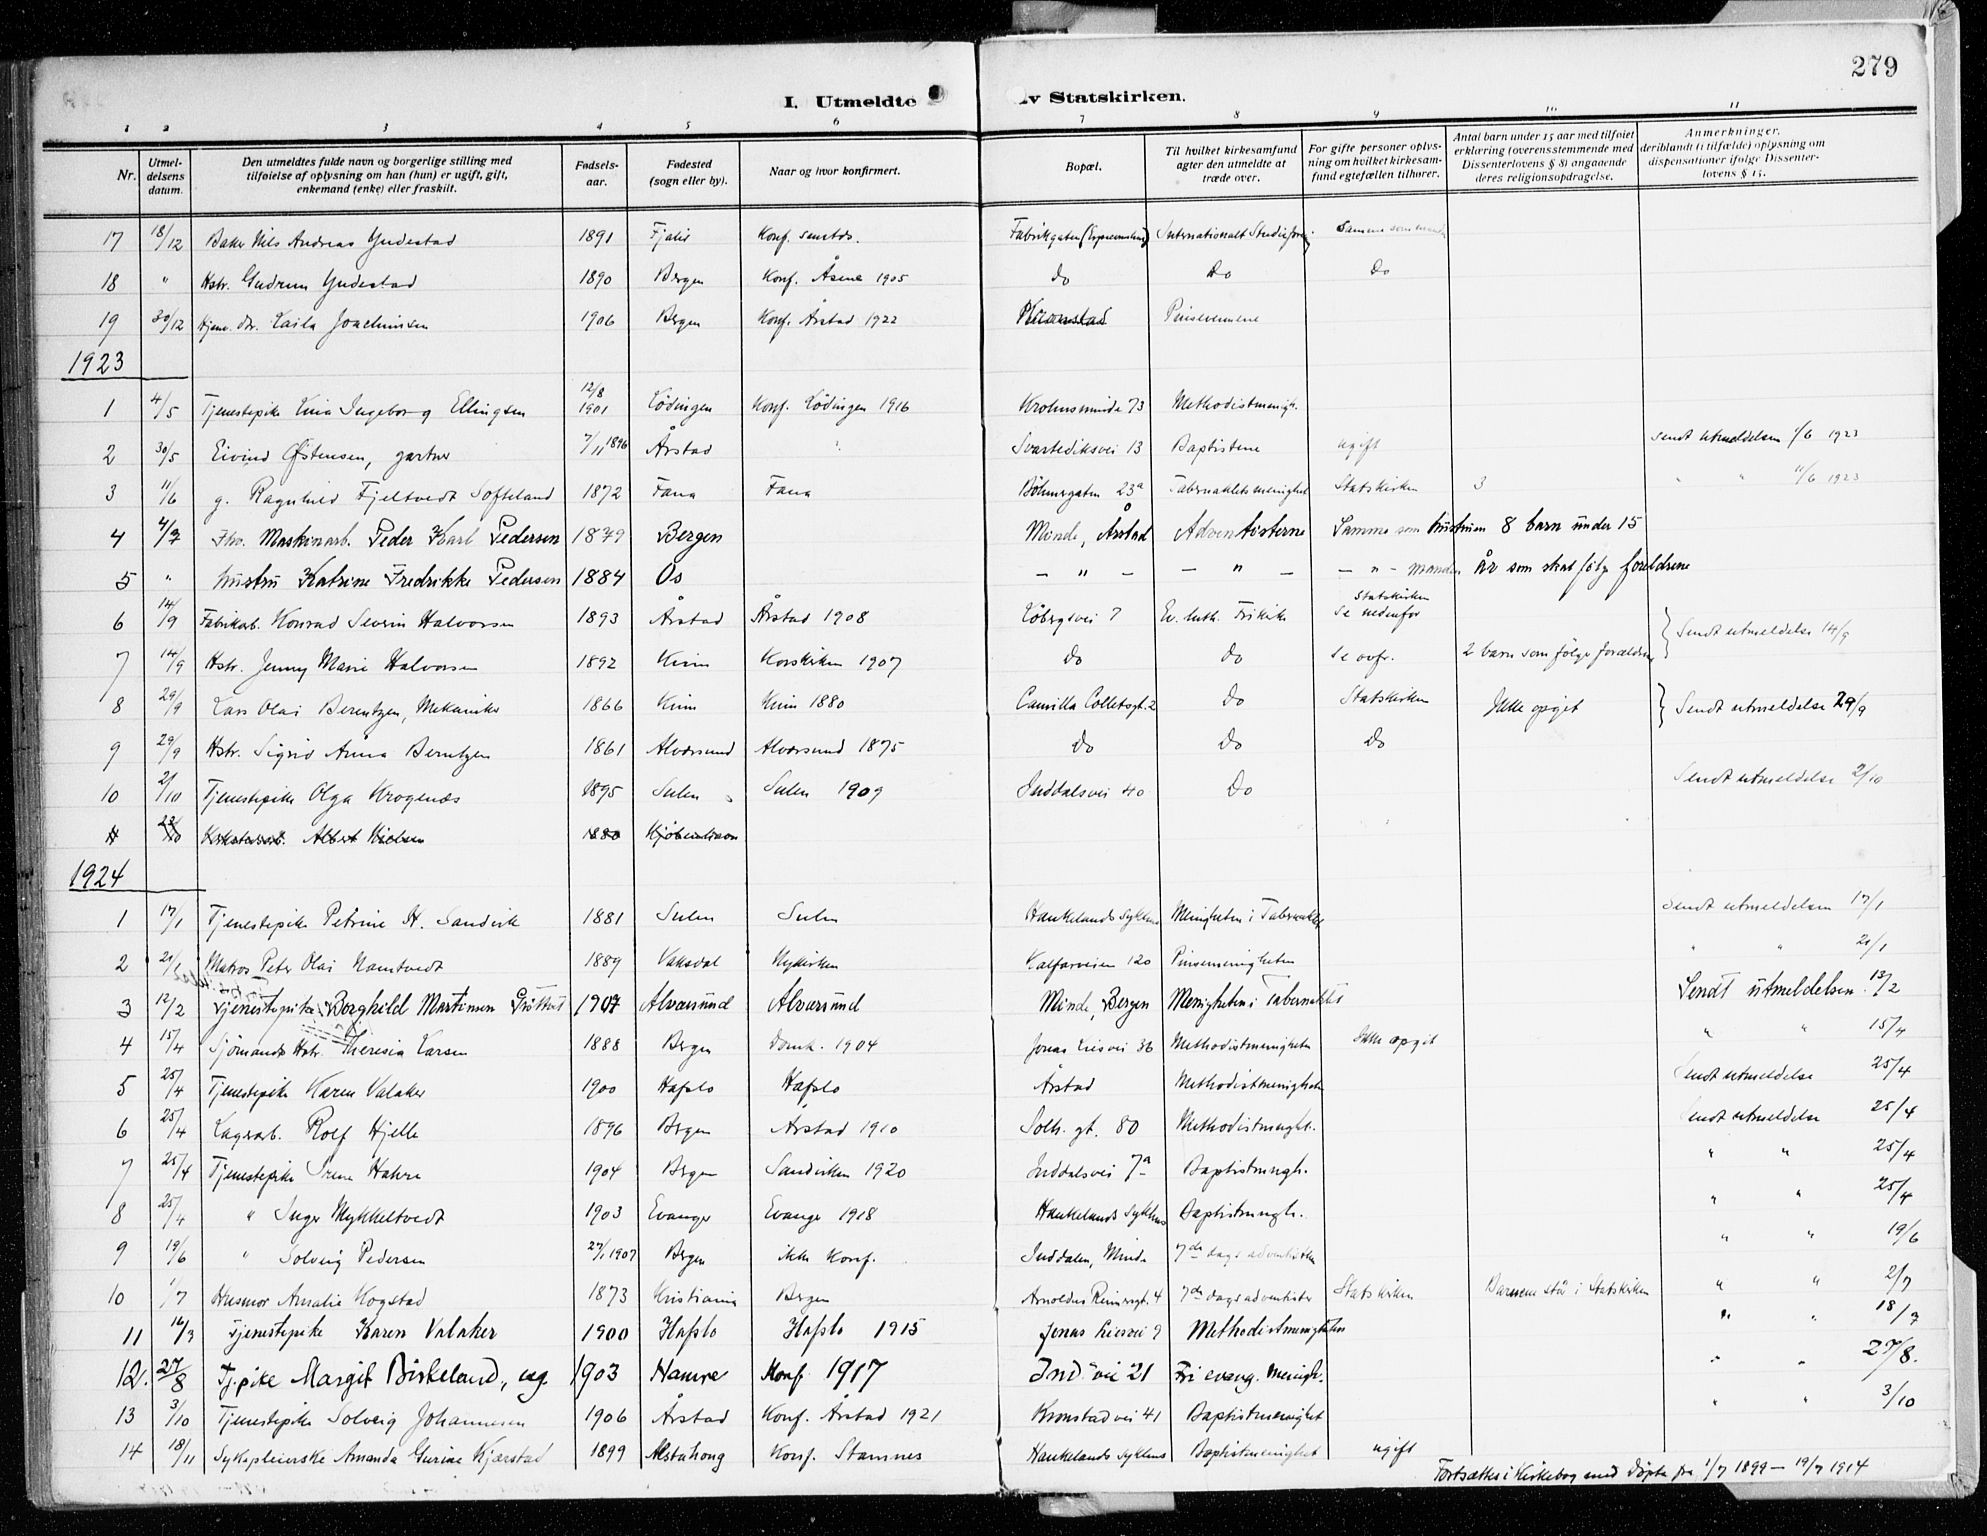 279
I. Utmeldte av Statskirken.
1 2 3 4 5 6 7 8 9 10 11
Nr. Utmeldelsens datum. Den utmeldtes fulde navn og borgerlige stilling med tilføielse af oplysning om han (hun) er ugift, gift, enkemand (enke) eller fraskilt. Fødselsaar. Fødested (sogn eller by). Naar og hvor konfirmert. Bopæl. Til hvilket kirkesamfund agter den utmeldte at træde over. For gifte personer oplysning om hvilket kirkesamfund egtefællen tilhører. Antal barn under 15 aar med tilføiet erklæring (overensstemmende med Dissenterlovens § 8) angaaende deres religionsopdragelse. Anmerkninger, deriblandt (i tilfælde) oplysning om dispensationer ifølge Dissenterlovens § 15.
17 18/12 Baker Nils Andreas Yndestad 1891 Fjaler Konf. samstds. Fabrikgaten Internationalt Studiefor. Samme som
18 " Hstr. Gudrun Yndestad 1890 Bergen Konf. Åsene 1905 do Do Do
19 30/12 Hjemv. dtr. Laila Joachimsen 1906 Bergen Konf. Årstad 1922 Pinsevennene
1923
1 4/5 Tjenestepike Lina Ingeborg Ellingsen 12/8 1901 Lödingen Konf. Lödingen 1916 Krohnsminde 73 Methodistmenigh.
2 30/5 Eivind Østensen, gartner 7/11 1896 Årstad Svartediksvei 13 Baptistene ugift Sendt utmeldelsen 1/6 1923
3 11/6 g. Ragnhild Fjeltvedt Softeland 1872 Fana Fana Böhmergaten 23a Tabernaklets menighet Statskirken 3 " " 11/6 1923
4 4/7 Fhv. Maskinarb. Peder Karl Pedersen 1879 Bergen Minde, Årstad Adventisterne Samme som hustruen 8 barn under 15
5 " hustru Katrine Fredrikke Pedersen 1884 Os - " - - " - - " - manden år som skal følge foreldrene
6 14/9 Fabrikarb. Konrad Severin Halvorsen 1893 Årstad Årstad 1908 Löbergsvei 7 Ev. luth. Frikirke Statskirken Se nedenfor } Sendt utmeldelse 14/9
7 14/9 Hstr. Jenny Marie Halvorsen 1892 Kinn Korskirken 1907 Do Do Se ovfr. 2 barn som følge forældrene
8 29/9 Lars Olai Berentzen, Mekaniker 1866 Kinn Kinn 1880 Camilla Colletsgt. 2 Do Statskirken Ikke opgit } Sendt utmeldelse 29/9
9 29/9 Hstr. Sigrid Anna Berntzen 1861 Alversund Alversund 1875 Do Do Do
10 2/10 Tjenestepike Olga Krogenæs 1895 Sulen Sulen 1909 Inddalsvei 40 Do Sendt utmeldelse 2/10
11 23/10 Albert Nielsen 1880 Kjöbenhavn
1924
1 17/1 Tjenestepike Petrine H. Sandvik 1881 Sulen Sulen Haukelands Sykehus Menigheten i Tabernaklet Sendt utmeldelsen 17/1
2 21/1 Matros Peter Olai Namtvedt 1889 Vaksdal Nykirken Kalfarveien 120 Pinsemenigheten " " 21/1
3 12/2 Tjenestepike Borghild Martinsen 1907 Alversund Alversund Minde, Bergen Menigheten i Tabernaklet Sendt utmeldelsen 13/2
4 15/4 Sjömands Hstr. Theresia Larsen 1888 Bergen Domk. 1904 Jonas Liesvei 36 Methodistmenigheten Ikke opgit " " 15/4
5 25/4 Tjenestepike Karen Valaker 1900 Hafslo Hafslo Årstad Methodistmenigheten Sendt utmeldelse 25/4
6 25/4 Lagerarb. Rolf Hjelle 1896 Bergen Årstad 1910 Solh. gt. 80 Methodistmengh. Sendt utmeldelse 25/4
7 25/4 Tjenestepike Irene 1904 Bergen Sandviken 1920 Inddalsvei 7a Baptistmngh. " " 25/4
8 25/4 " Inger Mykkeltvedt 1903 Evanger Evanger 1918 Haukelands Sykhus Baptistmngh. " " 25/4
9 19/6 " Solveig Pedersen 27/1 1907 Bergen ikke konf. Inddalen, Minde 7de dags adventisten " " 19/6
10 1/7 Husmor Amalie Hogstad 1873 Kristiania Bergen Arnoldus Reimersgt. 4 7de dags adventister Statskirken Barnene stå i Statskirken " " 2/7
11 16/7 Tjenestepike Karen Valaker 1900 Hafslo Hafslo 1915 Jonas Liesvei 9 Methodistmenigheten " " 18/7
12. 27/8 Tj.pike Margit Birkeland, ug. 1903 Hamre Konf. 1917 Ind vei 21 Fri evang. Menigh. " " 27/8.
13 3/10 Tjenestepike Solveig Johannesen 1906 Årstad Konf. Årstad 1921 Kronstadvei 41 Baptistmenighet " " 3/10
14 18/11 Sykepleierske Amanda Gurine Kjærstad 1899 Alstahoug Konf. Stamnes Haukelands Sykehus Baptistmenighet ugift
Fortsættes i Kirkebog med döpte fra 1/7 1899 — 19/7 1914